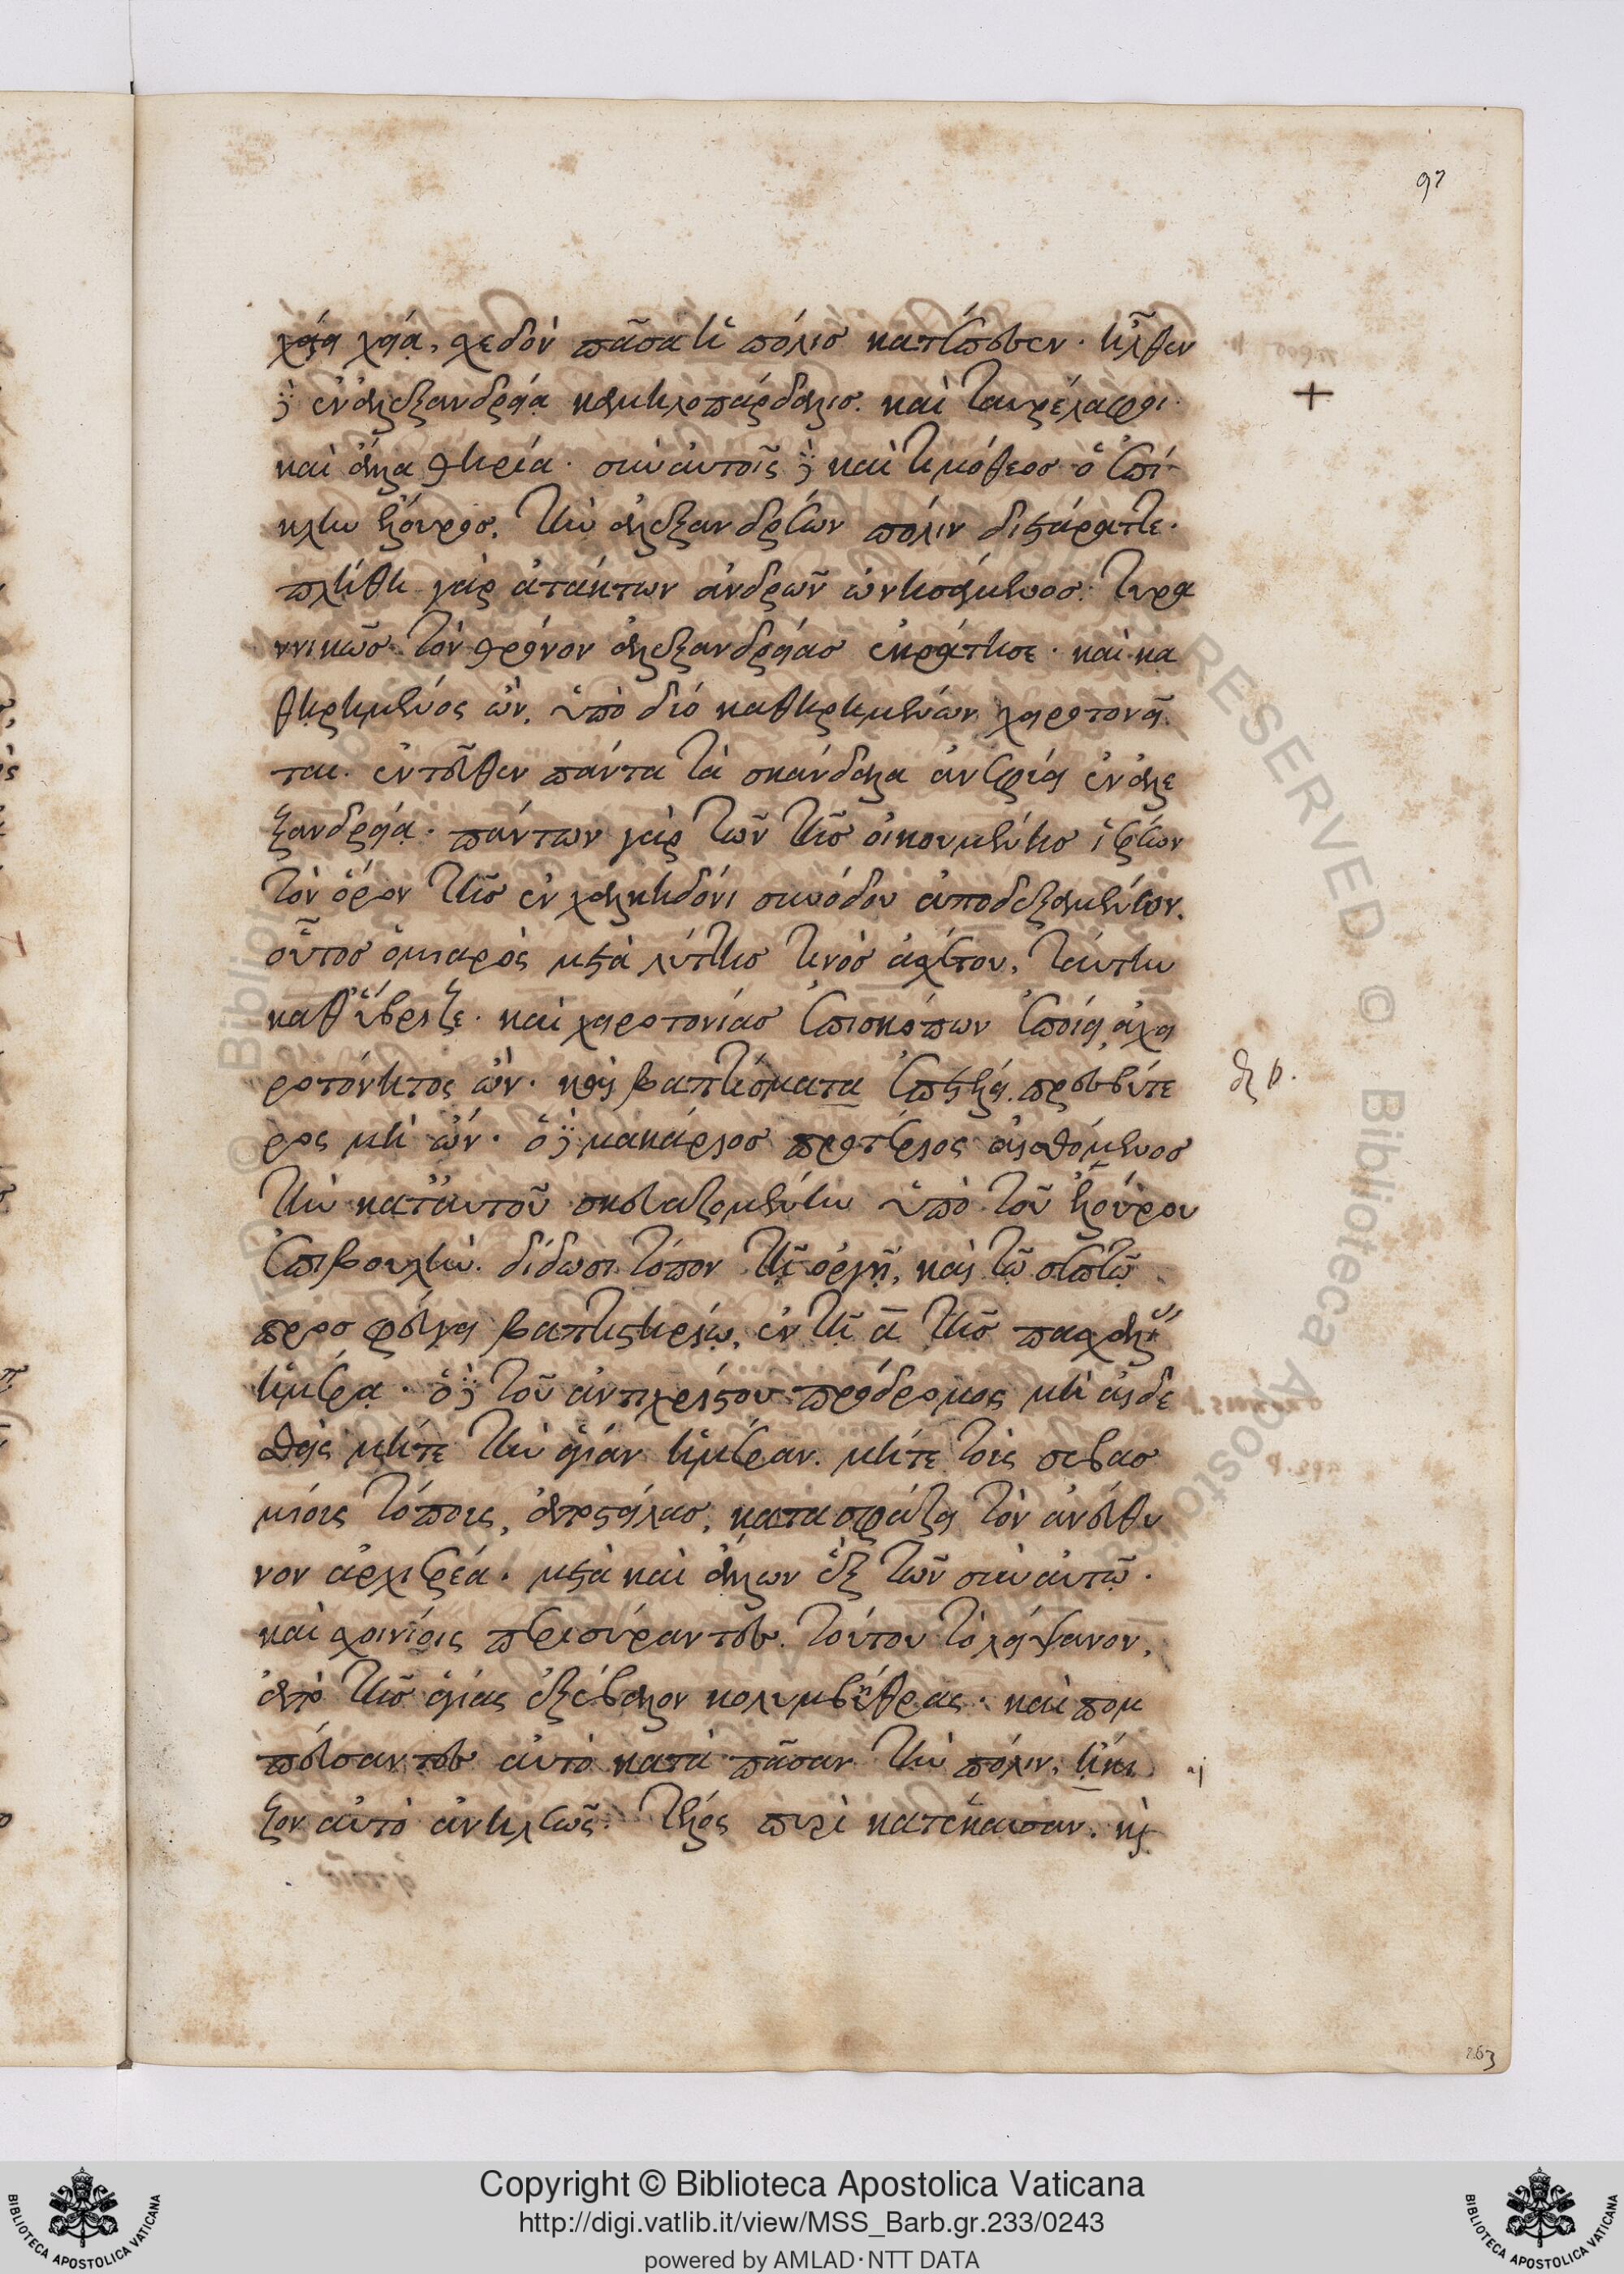 χεία χεία, σχεδὸν πᾶσα ἡ πόλις κατέπεσεν. ἦλθεν
δὲ ἐν ἀλεξανδρείᾳ καμηλοπάρδαλις. καὶ ταυρέλαφοι.
καὶ ἄλλα θηρία. σὺν αὐτοῖς δὲ καὶ τιμόθεος ὁ ἐπί
κλην ἔλουρος. τὴν ἀλεξανδρέων πόλιν διετάραττε.
πλήθη γὰρ ἀτάκτων ἀνδρῶν ὠνησάμενος. τυρα
ννικῶς τὸν θρόνον ἀλεξανδρείας ἐκράτησε. καὶ κα
θηρημένος ὢν, ὑπὸ δύο καθηρημένων χειροτονεῖ
ται. ἐντεῦθεν πάντα τὰ σκάνδαλα ἀνεφύει ἐν ἀλε
ξανδρείᾳ. πάντων γὰρ τῶν τῆς οἰκουμένης ἱερέων
τὸν ὅρον τῆς ἐν χαλκηδόνι συνόδου ἀποδεξαμένων.
οὗτος ὁ μιαρὸς μετὰ λύττης τινὸς ἀσχέτου, ταύτην
καθύβριζε. καὶ χειροτονίας ἐπισκόπων ἐποίει, ἀχει
ροτόνητος ὤν. καὶ βαπτίσματα ἐπετέλει. πρεσβύτε
ρος μὴ ὤν. ὁ δὲ μακάριος προτέριος αἰσθόμενος
τὴν κατ' αὐτοῦ σκευαζομένην ὑπὸ τοῦ ἐλούρου
ἐπιβουλήν. δίδωσι τόπον τῇ ὀργῇ, καὶ τῷ σεπτῷ
προσφεύγει βαπτιστηρίῳ, ἐν τῇ ᾱ τῆς πασχαλίου
ἡμέρᾳ. ὁ δὲ τοῦ ἀντιχρίστου πρόδρομος μὴ αἰδε
σθεὶς μήτε τὴν ἁγίαν ἡμέραν. μήτε τοῖς σεβασ
μίοις τόποις, ἀποστείλας, κατασφάζει τὸν ἀνεύθυ
νον ἀρχιερέα. μετὰ καὶ ἄλλων ἓξ τῶν σὺν αὐτῷ.
καὶ σχοινίοις περισύραντες τούτου τὸ λείψανον,
ἀπὸ τῆς ἁγίας ἐξέβαλον κολυμβήθρας. καὶ πομ
πεύσαντες αὐτὸ κατὰ πᾶσαν τὴν πόλιν, ἤκι
ζον αὐτὸ ἀνηλεῶς. τέλος πυρὶ κατέκαυσαν. καὶ
97
263
Copyright © Biblioteca Apostolica Vaticana
http://digi.vatlib.it/view/MSS_Barb.gr.233/0243
powered by AMLAD·NTT DATA